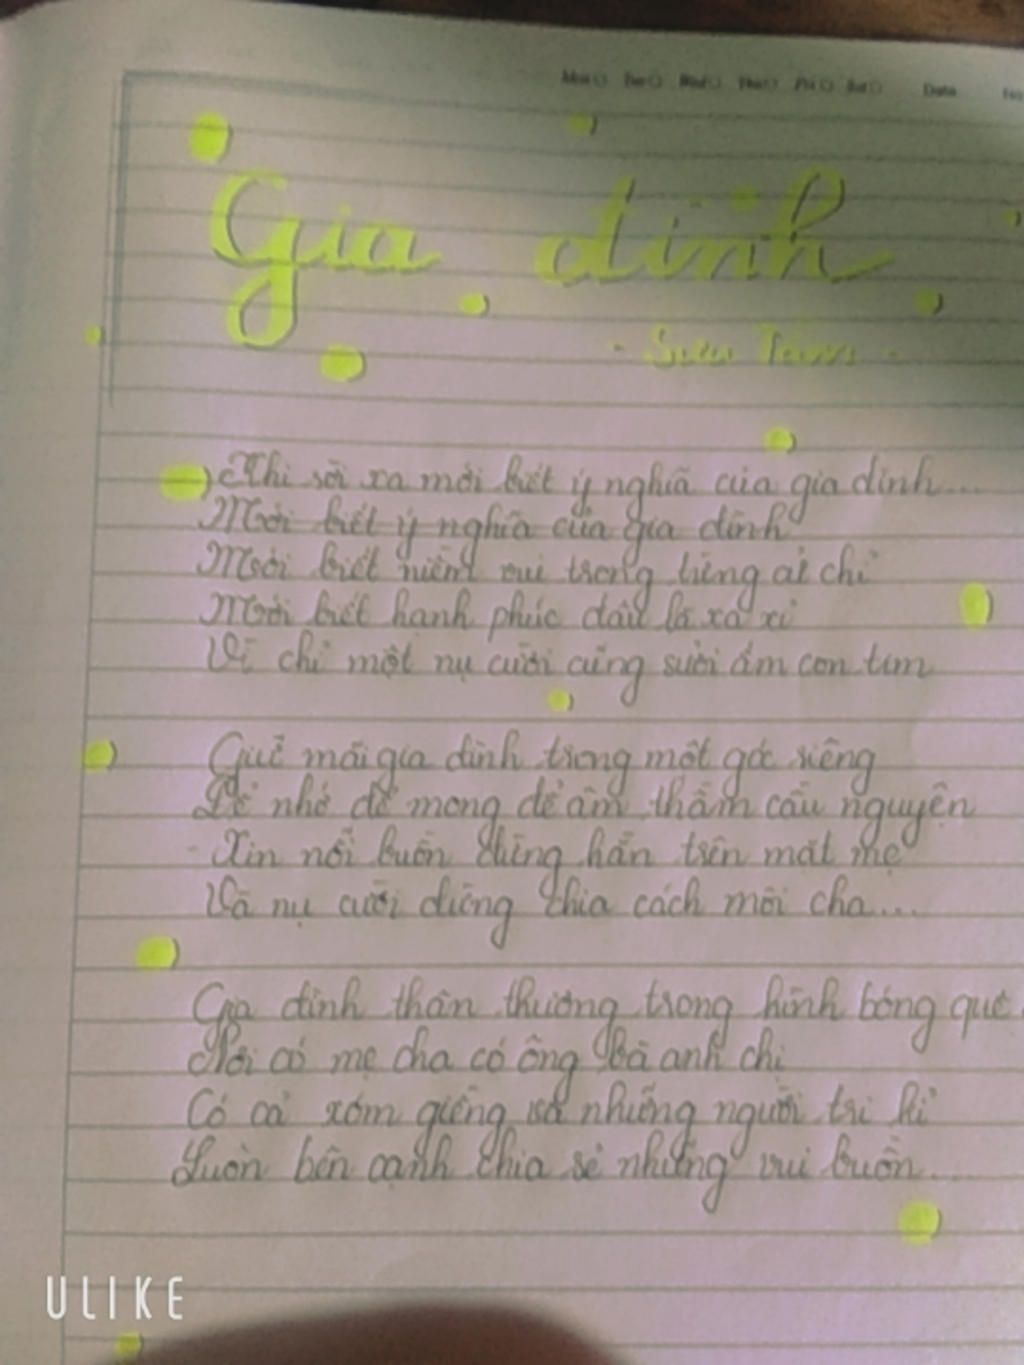 Mon Tue Wed Thu Fri Sat Date No
Gia đình
- Sưu Tầm -
Khi rời xa mới biết ý nghĩa của gia đình...
Mới biết ý nghĩa của gia đình
Mới biết niềm vui trong tiếng ai chỉ
Mới biết hạnh phúc đâu là xa xỉ
Vì chỉ một nụ cười cũng sưởi ấm con tim
Giữ mãi gia đình trong một góc riêng
Để nhớ để mong để âm thầm cầu nguyện
- Xin nỗi buồn đừng hằn trên mắt mẹ
Và nụ cười đừng chia cách môi cha...
Gia đình thân thương trong hình bóng quê
Nơi có mẹ cha có ông bà anh chị
Có cả xóm giềng và những người tri kỉ
Luôn bên cạnh chia sẻ những vui buồn...
ULIKE